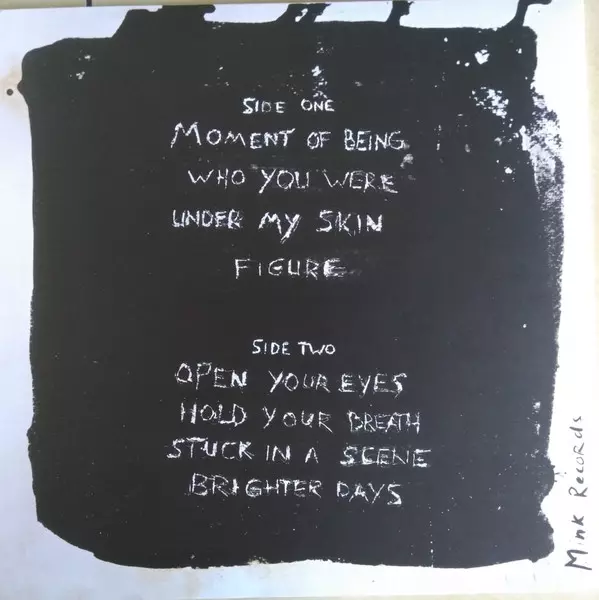 SIDE ONE
MOMENT OF BEING
WHO YOU WERE
UNDER MY SKIN
FIGURE
SIDE TWO
OPEN YOUR EYES
HOLD YOUR BREATH
STUCK IN A SCENE
BRIGHTER DAYS
Mink Records